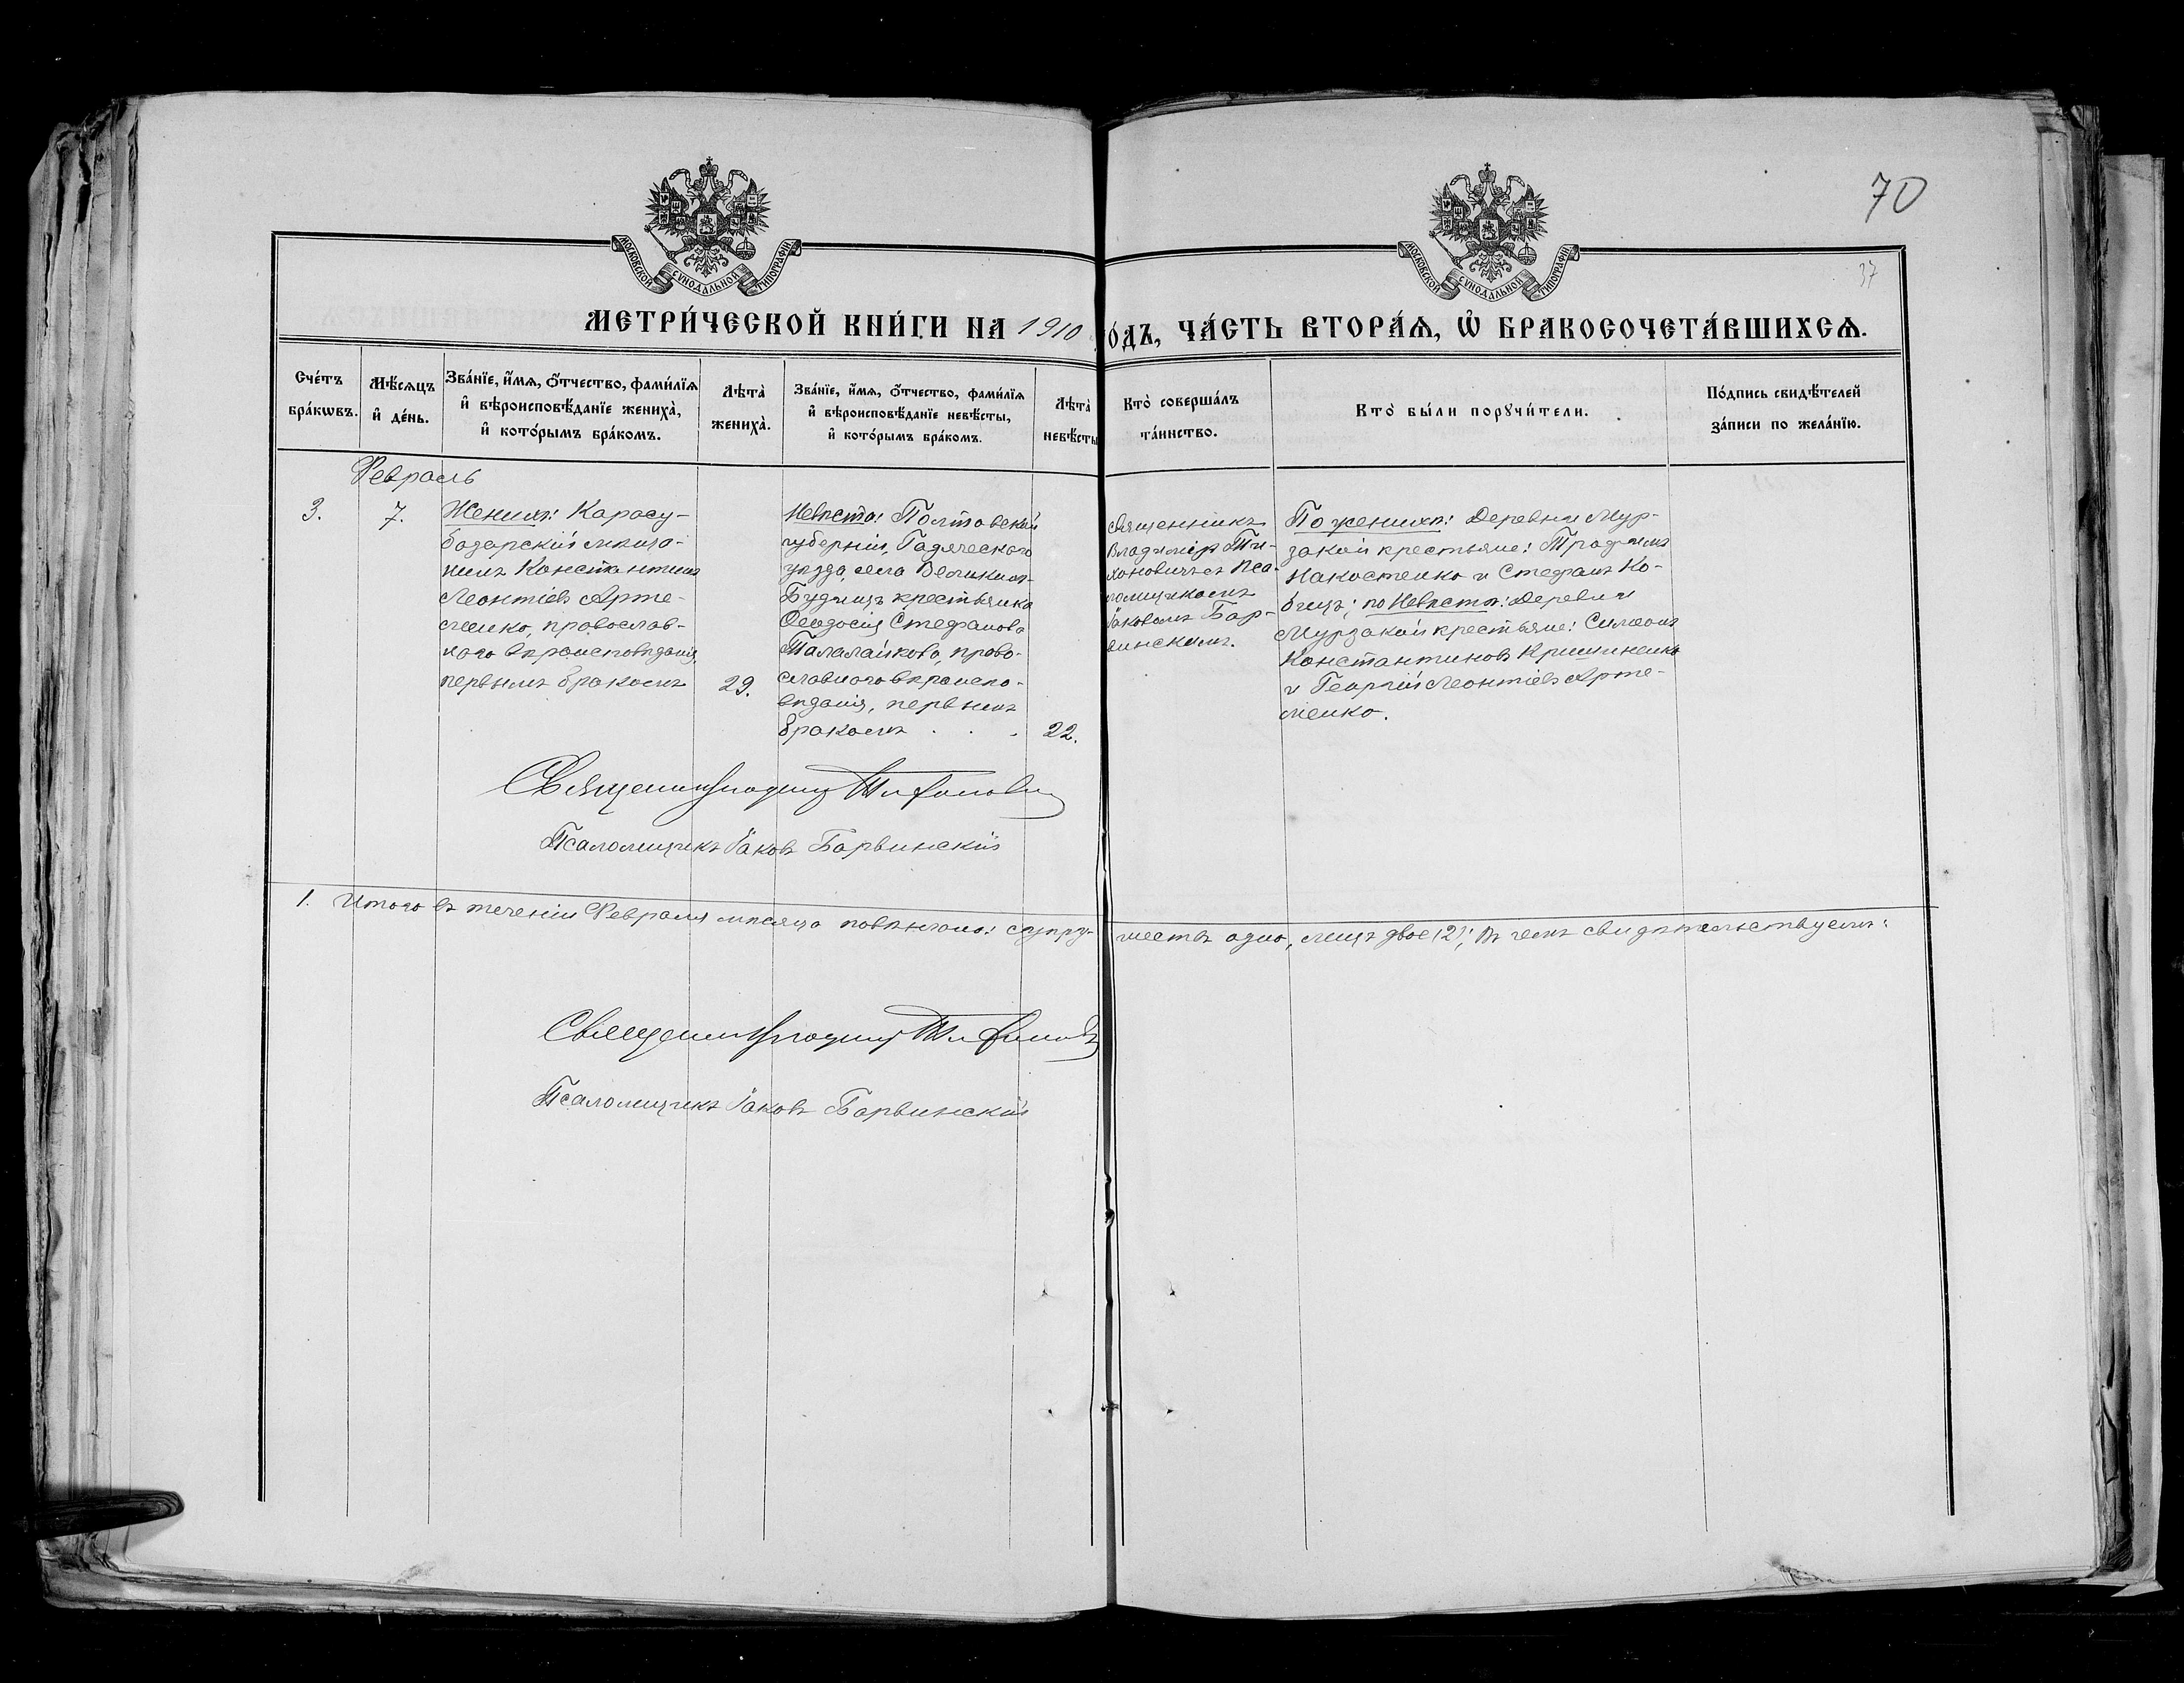 70
37
МОСКОВСКОЙ СѴНОДАЛЬНОЙ ТИПОГРАФІИ
МОСКОВСКОЙ СѴНОДАЛЬНОЙ ТИПОГРАФІИ
МЕТРИ́ЧЕСКОЙ КНИ́ГИ НА 1910 ГО́ДЪ, ЧА́СТЬ ВТОРА́Ѧ, Ѽ БРАКОСОЧЕТА́ВШИХСѦ.
Сче́тъ бра́кѡвъ.
Мѣ́сѧцъ и҆ де́нь.
Зва́нїе, и҆́мѧ, ѻ҆́тчество, фами́лїѧ и҆ вѣроисповѣ́данїе жениха̀, и҆ кото́рымъ бра́комъ.
Лѣта̀ жениха̀.
Зва́нїе, и҆́мѧ, ѻ҆́тчество, фами́лїѧ и҆ вѣроисповѣ́данїе невѣ́сты, и҆ кото́рымъ бра́комъ.
Лѣта̀ невѣ́сты
Кто̀ соверша́лъ та́инство.
Кто̀ бы́ли порꙋчи́тели.
По́дпись свидѣ́телей за́писи по жела́нїю.
Февраль
3.
7.
Женихъ: Карасу-
базарскій мѣща-
нинъ Константинъ
Леонтіевъ Арте-
менко, православ-
наго вѣроисповѣданія,
первымъ бракомъ
29.
Невѣста: Полтавской
губерніи, Гадяческаго
уѣзда, села Великихъ-
Будищъ крестьянка
Ѳеодосія Стефанова
Талалайкова, право-
славнаго вѣроиспо-
вѣданія, первымъ
бракомъ . . .
22.
Священникъ
Владиміръ Ти-
хановичъ съ Пса-
ломщикомъ
Іаковомъ Бар-
винскимъ.
По женихѣ: Деревни Мур-
закой крестьяне: Трофимъ
Накостенко и Стефанъ Ко-
бецъ; по Невѣстѣ: Деревни
Мурзакой крестьяне: Симеонъ
Константиновъ Кришиненко
и Георгій Леонтіевъ Арте-
менко.
Священникъ Владиміръ Тихановичъ
Псаломщикъ Іаковъ Барвинскій
1. Итого въ теченіи Февраля мѣсяца повѣнчано: супру- жествъ одно, лицъ двое (2); Въ чемъ свидѣтельствуемъ:
Священникъ Владиміръ Тихановичъ
Псаломщикъ Іаковъ Барвинскій